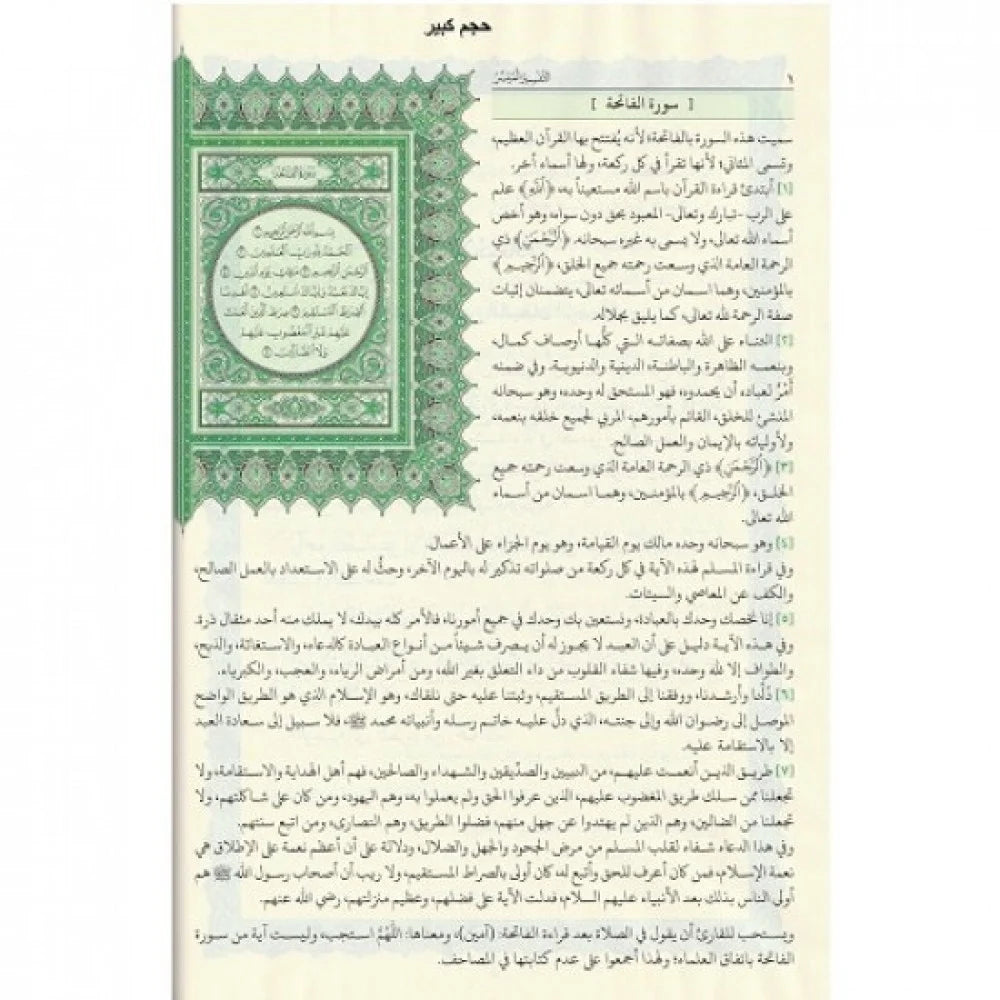 حجم كبير
التفسير الميسر ١
[ سورة الفاتحة ]
سميت هذه السورة بالفاتحة؛ لأنه يُفتتح بها القرآن العظيم،
وتسمى المثاني؛ لأنها تقرأ في كل ركعة، ولها أسماء أخر.
[١] أبتدئ قراءة القرآن باسم الله مستعيناً به، ﴿اللَّهِ﴾ علم
على الرب -تبارك وتعالى- المعبود بحق دون سواه، وهو أخص
أسماء الله تعالى، ولا يسمى به غيره سبحانه. ﴿الرَّحْمَنِ﴾ ذي
الرحمة العامة الذي وسعت رحمته جميع الخلق، ﴿الرَّحِيمِ﴾
بالمؤمنين، وهما اسمان من أسمائه تعالى، يتضمنان إثبات
صفة الرحمة لله تعالى، كما يليق بجلاله.
[٢] الثناء على الله بصفاته التي كلُّها أوصاف كمال،
وبنعمه الظاهرة والباطنة، الدينية والدنيوية، وفي ضمنه
أَمْرٌ لعباده أن يحمدوه، فهو المستحق له وحده، وهو سبحانه
المنشئ للخلق، القائم بأمورهم، المربي لجميع خلقه بنعمه،
ولأوليائه بالإيمان والعمل الصالح.
[٣] ﴿الرَّحْمَنِ﴾ ذي الرحمة العامة الذي وسعت رحمته جميع
الخلق، ﴿الرَّحِيمِ﴾ بالمؤمنين، وهما اسمان من أسماء
الله تعالى.
سورة الفاتحة
بسم الله الرحمن الرحيم ١
الحمد لله رب العالمين ٢
الرحمن الرحيم ٣ مالك يوم الدين ٤
إياك نعبد وإياك نستعين ٥ اهدنا
الصراط المستقيم ٦ صراط الذين أنعمت
عليهم غير المغضوب عليهم
ولا الضالين ٧
[٤] وهو سبحانه وحده مالك يوم القيامة، وهو يوم الجزاء على الأعمال.
وفي قراءة المسلم لهذه الآية في كل ركعة من صلواته تذكير له باليوم الآخر، وحثٌّ له على الاستعداد بالعمل الصالح،
والكف عن المعاصي والسيئات.
[٥] إنا نخصك وحدك بالعبادة، ونستعين بك وحدك في جميع أمورنا، فالأمر كله بيدك، لا يملك منه أحد مثقال ذرة.
وفي هذه الآية دليل على أن العبد لا يجوز له أن يصرف شيئاً من أنواع العبادة كالدعاء والاستغاثة والذبح
والطواف إلا لله وحده، وفيها شفاء القلوب من داء التعلق بغير الله، ومن أمراض الرياء، والعجب، والكبرياء.
[٦] دُلَّنا وأرشدنا، ووفقنا إلى الطريق المستقيم، وثبتنا عليه حتى نلقاك، وهو الإسلام الذي هو الطريق الواضح
الموصل إلى رضوان الله وإلى جنته، الذي دلَّ عليه خاتم رسله وأنبيائه محمد ﷺ، فلا سبيل إلى سعادة العبد
إلا بالاستقامة عليه.
[٧] طريق الذين أنعمت عليهم، من النبيين والصدِّيقين والشهداء والصالحين، فهم أهل الهداية والاستقامة، ولا
تجعلنا ممن سلك طريق المغضوب عليهم، الذين عرفوا الحق ولم يعملوا به، وهم اليهود، ومن كان على شاكلتهم، ولا
تجعلنا من الضالين، وهم الذين لم يهتدوا عن جهل منهم، فضلوا الطريق، وهم النصارى، ومن اتبع سنتهم.
وفي هذا الدعاء شفاء لقلب المسلم من مرض الجحود والجهل والضلال، ودلالة على أن أعظم نعمة على الإطلاق هي
نعمة الإسلام، فمن كان أعرف للحق وأتبع له، كان أولى بالصراط المستقيم، ولا ريب أن أصحاب رسول الله ﷺ هم
أولى الناس بذلك بعد الأنبياء عليهم السلام، فدلت الآية على فضلهم، وعظيم منزلتهم، رضي الله عنهم.
ويستحب للقارئ أن يقول في الصلاة بعد قراءة الفاتحة: (آمين)، ومعناها: اللَّهُمَّ استجب، وليست آية من سورة
الفاتحة باتفاق العلماء؛ ولهذا أجمعوا على عدم كتابتها في المصاحف.